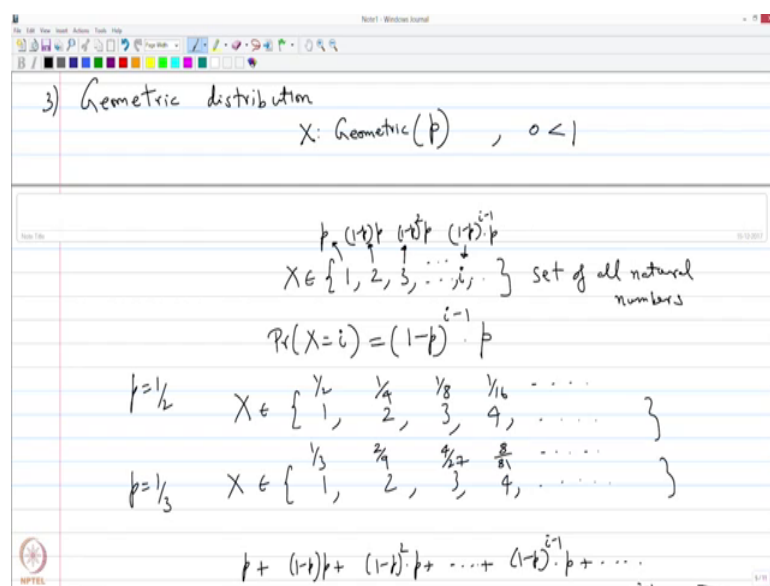 Note1 - Windows Journal
File Edit View Insert Actions Tools Help
Page Width
B I
3) Geometric distribution
X: Geometric(p) , 0<1
Note Title
p (1-p)p (1-p)²p (1-p)^{i-1}·p
X ∈ {1, 2, 3, ..., i, ..} set of all natural
numbers
Pr(X=i) = (1-p)^{i-1}·p
1/2 1/4 1/8 1/16 .....
p=1/2 X ∈ {1, 2, 3, 4, ..... }
1/3 2/9 4/27 8/81 .....
p=1/3 X ∈ {1, 2, 3, 4, ..... }
p + (1-p)p + (1-p)²·p + ..... + (1-p)^{i-1}·p + .....
NPTEL